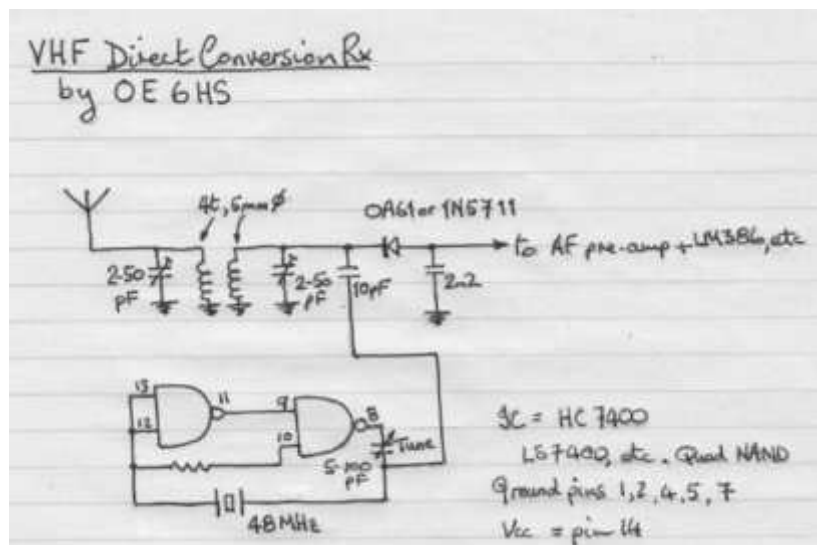 VHF Direct Conversion Rx
by OE6HS
4t, 5mm Ø
OA61 or 1N5711
to AF pre-amp + LM386, etc
2-50
pF
2-50
pF
10pF
2n2
13
12
11
9
10
8
Tune
5-100
pF
48MHz
IC = HC7400
LS7400, etc. Quad NAND
Ground pins 1, 2, 4, 5, 7
Vcc = pin 14